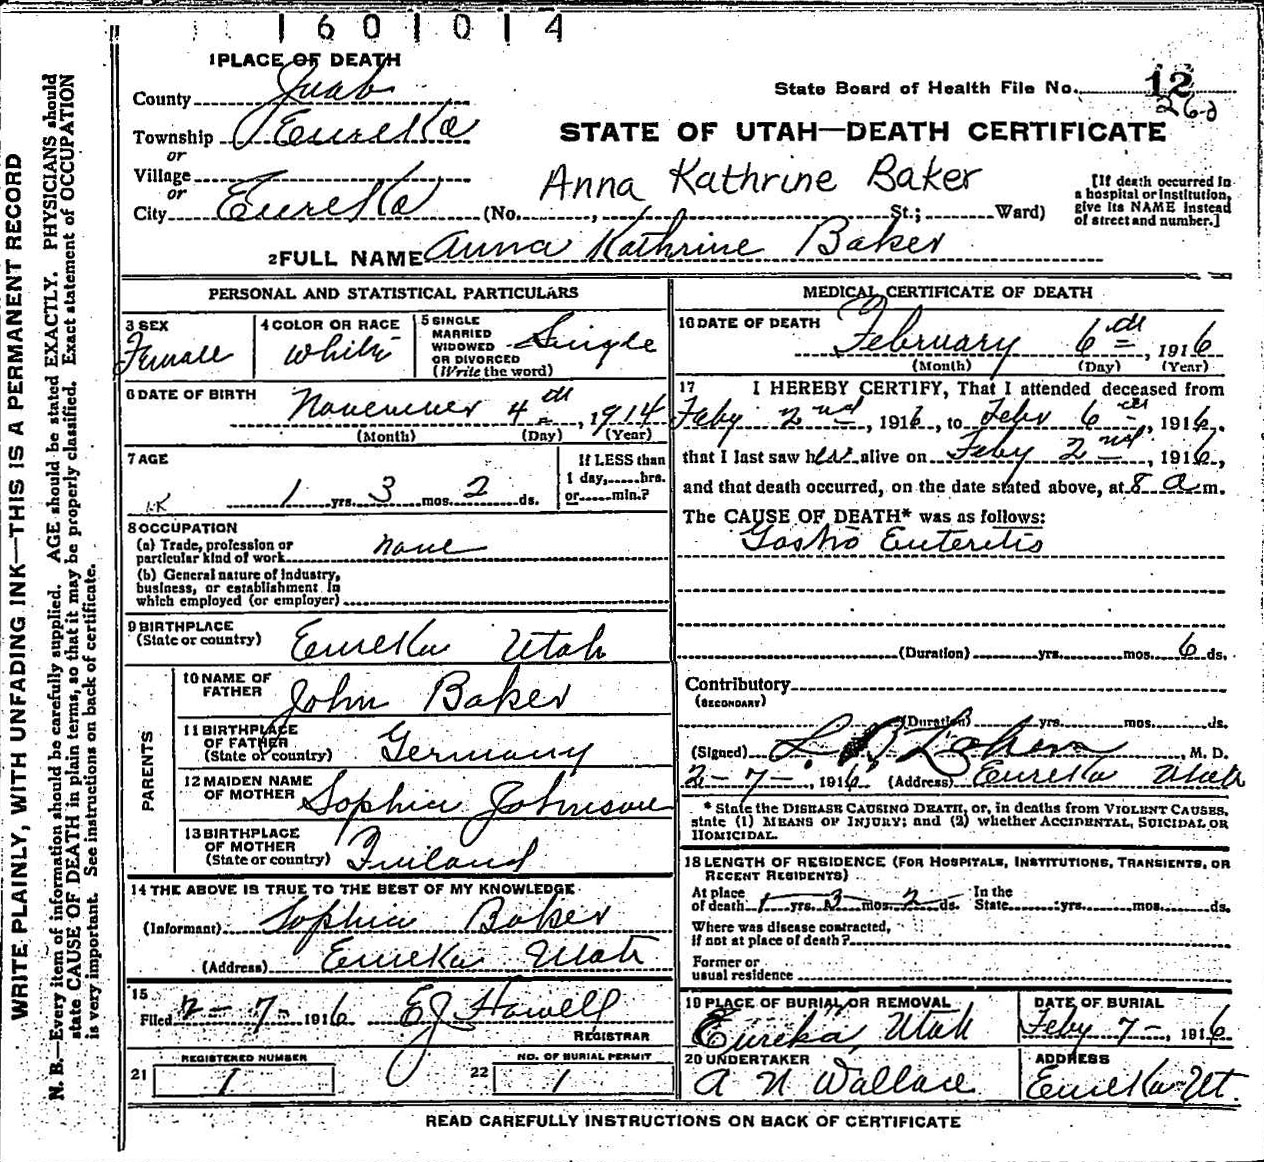 1 6 0 1 0 1 4
1 PLACE OF DEATH
County Juab
State Board of Health File No. 12
262
Township Eureka
or
STATE OF UTAH—DEATH CERTIFICATE
Village
or
Anna Kathrine Baker
City Eureka (No. , St.; Ward)
[If death occurred in a hospital or institution, give its NAME instead of street and number.]
2 FULL NAME Anna Kathrine Baker
PERSONAL AND STATISTICAL PARTICULARS
3 SEX
Female
4 COLOR OR RACE
White
5 SINGLE
MARRIED
WIDOWED
OR DIVORCED
(Write the word)
Single
6 DATE OF BIRTH
November 4th, 1914
(Month) (Day) (Year)
7 AGE
1 yrs. 3 mos. 2 ds.
If LESS than
1 day, hrs.
or min.?
8 OCCUPATION
(a) Trade, profession or
particular kind of work none
(b) General nature of industry,
business, or establishment in
which employed (or employer)
9 BIRTHPLACE
(State or country) Eureka Utah
PARENTS
10 NAME OF
FATHER John Baker
11 BIRTHPLACE
OF FATHER
(State or country) Germany
12 MAIDEN NAME
OF MOTHER Sophia Johnson
13 BIRTHPLACE
OF MOTHER
(State or country) Finland
14 THE ABOVE IS TRUE TO THE BEST OF MY KNOWLEDGE
(Informant) Sophia Baker
(Address) Eureka Utah
15
Filed 2-7-, 1916 EJ Howell
REGISTRAR
REGISTERED NUMBER
21 1
NO. OF BURIAL PERMIT
22 1
MEDICAL CERTIFICATE OF DEATH
16 DATE OF DEATH
February 6th, 1916
(Month) (Day) (Year)
17 I HEREBY CERTIFY, That I attended deceased from
Feby 2nd, 1916, to Feby 6th, 1916,
that I last saw her alive on Feby 2nd, 1916,
and that death occurred, on the date stated above, at 8 a m.
The CAUSE OF DEATH* was as follows:
Gastro Enteritis
(Duration) yrs. mos. 6 ds.
Contributory
(SECONDARY)
(Duration) yrs. mos. ds.
(Signed) M. D.
2-7-, 1916 (Address) Eureka Utah
* State the DISEASE CAUSING DEATH, or, in deaths from VIOLENT CAUSES,
state (1) MEANS OF INJURY; and (2) whether ACCIDENTAL, SUICIDAL OR
HOMICIDAL.
18 LENGTH OF RESIDENCE (FOR HOSPITALS, INSTITUTIONS, TRANSIENTS, OR
RECENT RESIDENTS)
At place
of death 1 yrs. 3 mos. 2 ds.
In the
State yrs. mos. ds.
Where was disease contracted,
if not at place of death?
Former or
usual residence
19 PLACE OF BURIAL OR REMOVAL
Eureka, Utah
DATE OF BURIAL
Feby 7-, 1916
20 UNDERTAKER
A N Wallace
ADDRESS
Eureka Ut.
READ CAREFULLY INSTRUCTIONS ON BACK OF CERTIFICATE
WRITE PLAINLY, WITH UNFADING INK—THIS IS A PERMANENT RECORD
N. B.—Every item of information should be carefully supplied. AGE should be stated EXACTLY. PHYSICIANS should
state CAUSE OF DEATH in plain terms, so that it may be properly classified. Exact statement of OCCUPATION
is very important. See instructions on back of certificate.